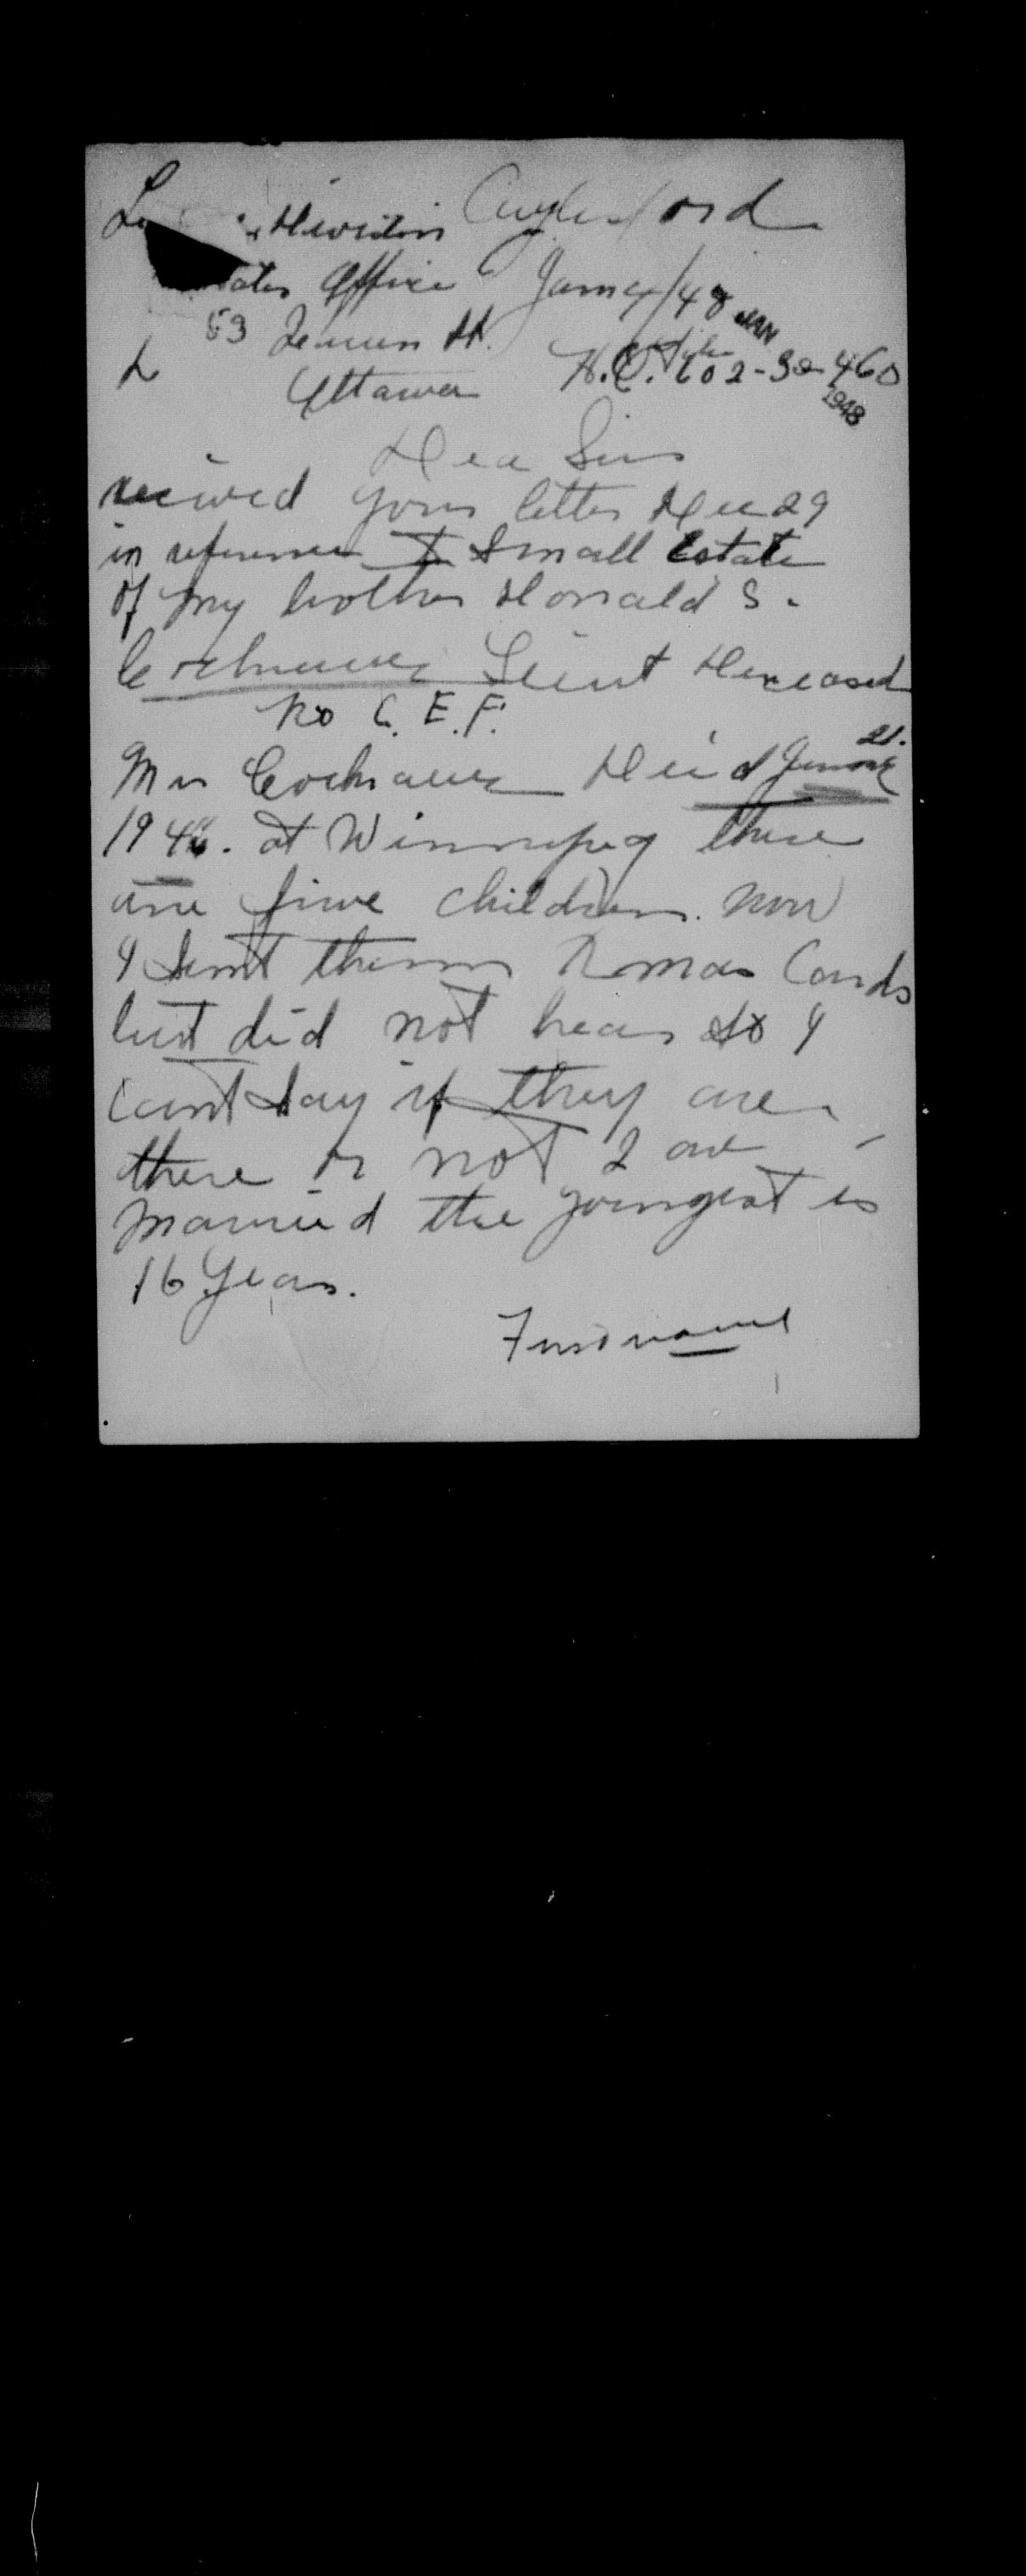 Division Aylesford
Office Jan 4/48 JAN
53 St.
Ottawa H.Q. File 602-30-460
1948
Dea Sir
received your letter Dec 29
in reference to Small Estate
of my brother Donald S.
Cochrane Lieut Deceased
No C. E. F.
Mrs Cochrane Died 21.
1946. at Winnipeg there
are five children. now
I sent them Xmas Cards
but did not hear so I
cant say if they are
there or not 2 are
married the youngest is
16 years.